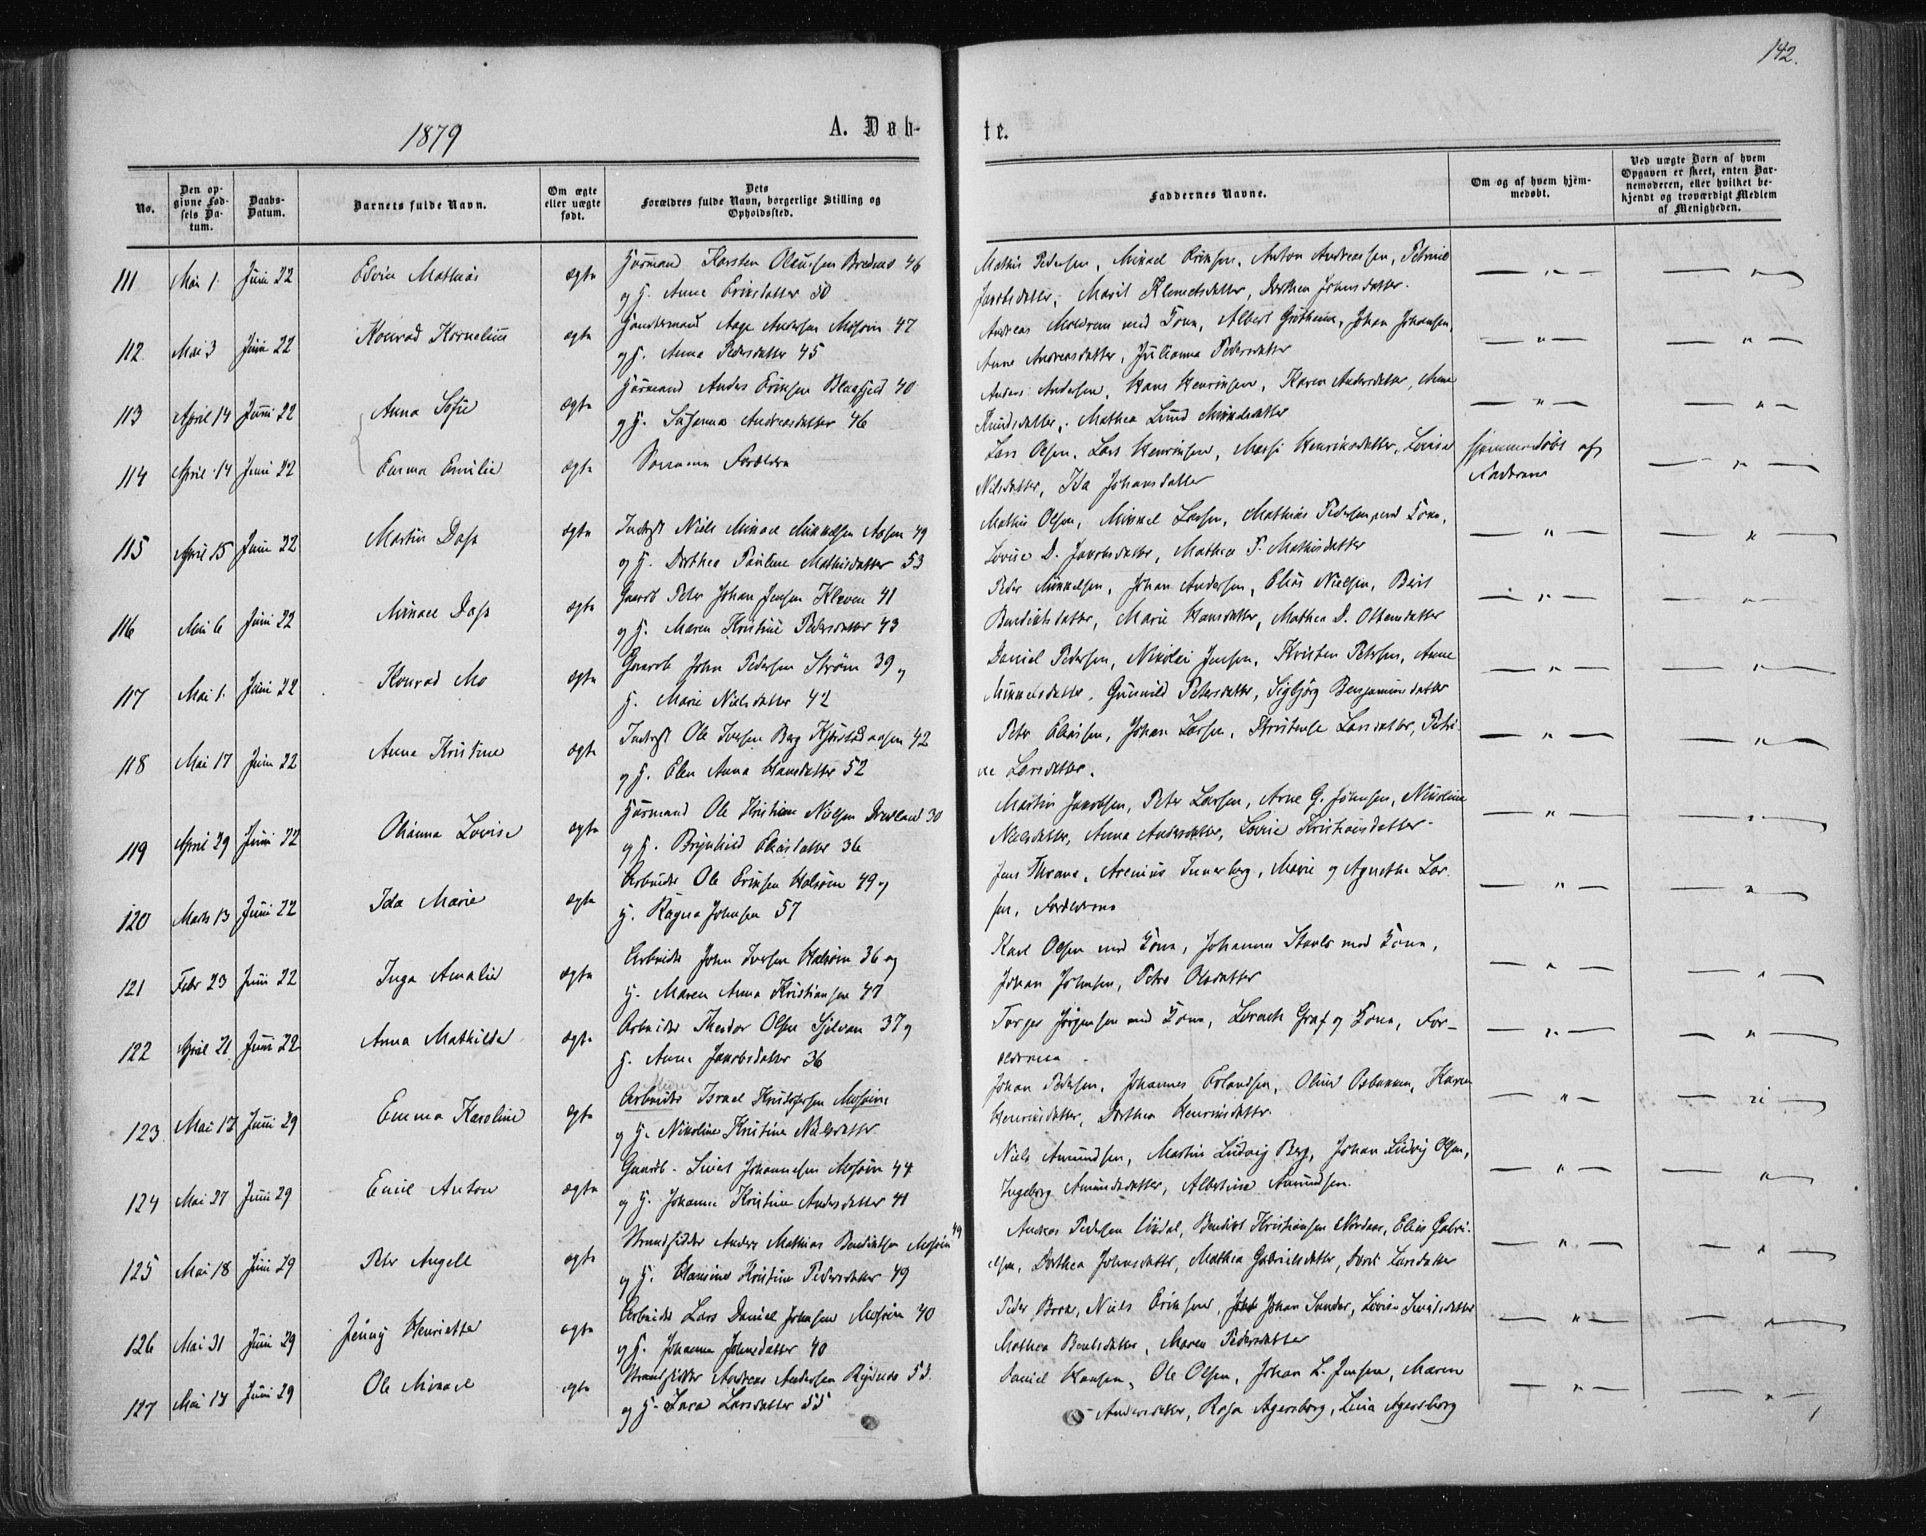 142.
1879
A. Døb-
te.
No.
Den op-
givne Fød-
sels Da-
tum.
Daabs-
Datum.
Barnets fulde Navn.
Om ægte
eller uægte
født.
Dets
Forældres fulde Navn, borgerlige Stilling og
Opholdssted.
Faddernes Navne.
Om og af hvem hjem-
medøbt.
Ved uægte Børn af hvem
Opgaven er skeet, enten Bar-
nemoderen, eller hvilket be-
kjendt og troværdigt Medlem
af Menigheden.
111 Mai 1. Juni 22 Edvin Mathias ægte Husmand Karsten Olausen Brednes 46
og H. Anne Eriksdatter 50
Mathis Pedersen, Mikael Eriksen, Anton Andreassen, Petrine
Jakobsdatter, Marit Klemetsdatter, Dorthea Johnsdatter.
112. Mai 3 Juni 22 Konrad Kornelius ægte Aage Andersen Mosjøen 47
og H. Anna Pedersdatter 45
Andreas med Kone, Albert, Johan Johansen,
Anne Andreasdatter, Julianna Pedersdatter
113 April 14 Juni 22 Anna Sofie ægte Husmand Anders Eriksen Blaafjeld 40
og H. Susanna Andreasdatter 46
Anders Andersen, Hans Henriksen, Karen Andersdatter, Anne
Knudsdatter, Mathea Lund Mikkelsdatter
114 April 14 Juni 22 Emma Emilie ægte Samme Forældre
Lars Olsen, Lars Henriksen, Henriksdatter, Lovise
Nilsdatter, Ida Johansdatter
Hjemmedøbt af
Faderen
115 April 15 Juni 22 Martin Dass ægte Inderst Niels Mikael Mikkelsen Aasen 49
og H. Dorthea Pauline Mathisdatter 53
Mathis Olsen, Mikkel Larsen, Mathias Pedersen med Kone,
Lovise D. Jakobsdatter, Mathea P. Mathisdatter
116 Mai 6 Juni 22 Mikael Dass ægte Gaardb Peter Johan Jensen Kleven 41
og H. Maren Kristine Pedersdatter 43
Peder Mikkelsen, Johan Andersen, Elias Nielsen, Berit
Bendiktsdatter, Marie Hansdatter, Mathea D. Ottemsdatter
117 Mai 1. Juni 22 Konrad Mo ægte Gaardb John Pedersen Strøm 39 og
H. Marie Nielsdatter 42
Daniel Pedersen, Nikolai Jensen, Kristen Petersen, Anne
Mikkelsdatter, Gunhild Petersdatter, Sigbjørg Benjaminsdatter
118 Mai 17 Juni 22 Anna Kristine ægte Inderst Ole Iversen Berg 42
og H. Elen Anna Hansdatter 52
Peter Eliasen, Johan Larsen, Larsdatter, Petri-
ne Larsdatter.
119 April 29 Juni 22 Olianna Lovise ægte Husmand Ole Kristian Nielsen Drevland 30
og H. Brynhild Eliasdatter 36
Martin Jakobsen, Peter Larsen, Arne G. Johnsen, Nikoline
Nielsdatter, Anna Andersdatter, Lovise Kristiansdatter.
120 Marts 13 Juni 22 Ida Marie ægte Arbeider Ole Eriksen Halsøen 49 og
H. Ragna Johnsen 57
Jens Thrane, Arenius Innerberg, Marie og Agnethe Lar-
sen, Forældrene
121 Febr 23 Juni 22 Inga Amalie ægte Arbeider John Iversen Halsøen 36 og
H. Maren Anna Kristiansen 47
Karl Olsen med Kone, Johannes med Kone,
Johan Johnsen, Petra Olsdatter
122 April 21 Juni 22 Anna Mathilde ægte Arbeider Theodor Olsen Sjelvan 37 og
H. Anne Jakobsdatter 36
Torger Jørgensen med Kone, Graf og Kone, For-
ældrene
123 Mai 12 Juni 29 Emma Karoline ægte Arbeider Israel Kristofersen Mosjøen
og H. Nikoline Kristine Nielsdatter
Johan Pedersen, Johannes Erlandsen, Osbakken, Karen
Henriksdatter, Dorthea Henriksdatter.
124 Mai 27 Juni 29 Emil Anton ægte Gaardb. Sivert Johannesen Mosjøen 44
og H. Johanne Kristine Andersdatter 41
Niels Amundsen, Martin Ludvig Berg, Johan Ludvig Olsen,
Ingeborg Amundsdatter, Albertine Amundsen.
125 Mai 18 Juni 29 Peter Angell ægte Strandsidder Anders Mathias Bendiktsen Mosjøen 49
og H. Hansine Kristine Pedersdatter 49
Andreas Pedersen, Bendikt Kristiansen, Elias Gabri-
elsen, Dorthea Johnsdatter, Mathea Gabrielsdatter, Larsdatter
126 Mai 31 Juni 29 Jenny Henriette ægte Arbeider Lars Daniel Johnsen Mosjøen 40
og H. Johanna Johnsdatter 40
Peder, Niels Eriksen, Johan Sunder, Lovise
Mathea Bentsdatter, Maren Pedersdatter
127 Mai 13 Juni 29 Ole Mikael ægte Strandsidder Andreas Andersen Rynes 53.
og H. Lava Larsdatter 55
Daniel Hansen, Ole Olsen, Johan L. Jensen, Maren
Andersdatter, Rosa Agersborg, Lina Agersborg